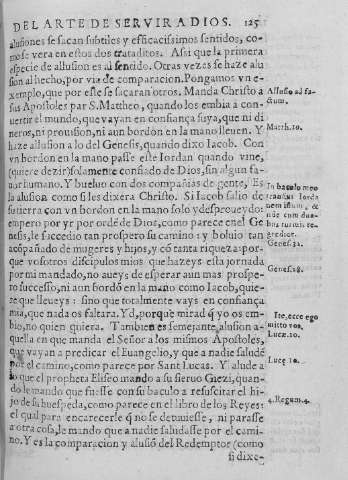 DEL ARTE DE SERVIR A DIOS. 125
alusiones se sacan subtiles y efficacissimos sentidos, co-
mo se vera en estos dos trataditos. Assi que la primera
especie de allusion es al sentido. Otras vezes se haze alu
sion al hecho, por via de comparacion. Pongamos vn e-
xemplo, que por este se sacaran otros. Manda Christo a
sus Apostoles par S. Mattheo, quando los embia a con-
uertir el mundo, que vayan en confiança suya, que ni di
neros, ni prouision, ni aun bordón en la mano lleuen. Y
haze allusion a lo del Genesis, quando dixo Iacob. Con
vn bordon en la mano passe este Iordan quando vine,
(quiere dezir) solamente confiado de Dios, sin algun fa-
uor humano. Y bueluo con dos compañias de gente, Es
la alusion como si les dixera Christo. Si Iacob salio de
su tierra con vn bordon en la mano solo y desproueydo:
empero por yr por ordé de Dios, como parece en el Ge
nesis, le succedio tan prospero su camino: y boluio tan
acópañado de mugeres y hijos, y có tanta riqueza: por-
que vosotros discipulos mios que hazeys esta jornada
por mi mandado, no aueys de esperar aun mas prospe-
ro successo, ni aun bordó en la mano como Iacob, quie-
ro que lleueys: sino que totalmente vays en confiança
mia, que nada os faltara. Y d, porque mirad q yo os em-
bio, no quien quiera. Tambien es semejante alusion a-
quella en que manda el Señor a los mismos Apostoles,
que vayan a predicar el Euangelio, y que a nadie saludé
por el camino, como parece por Sant Lucas. Y alude a
lo que el propheta Eliseo mando a su sieruo Giezi, quan-
do le mando que fuesse con su baculo a resuscitar el hi-
jo de su huespeda, como parece en el libro de los Reyes:
el qual para encarecerle q no se detuuiesse, ni parasse
a otra cosa, le mando que a nadie saludasse por el cami-
no. Y es la comparacion y alusió del Redemptor (como
si dixe-
Allusio ad fa-
ctum.
Matth. 10.
In baculo meo
transiui Iorda
nem istum, &
nũc cum dua-
bus turmis re-
gredior.
Genes. 32.
Genes. 28.
Ite, ecce ego
mitto vos.
Lucæ. 10.
Lucę 10.
4. Regum. 4.